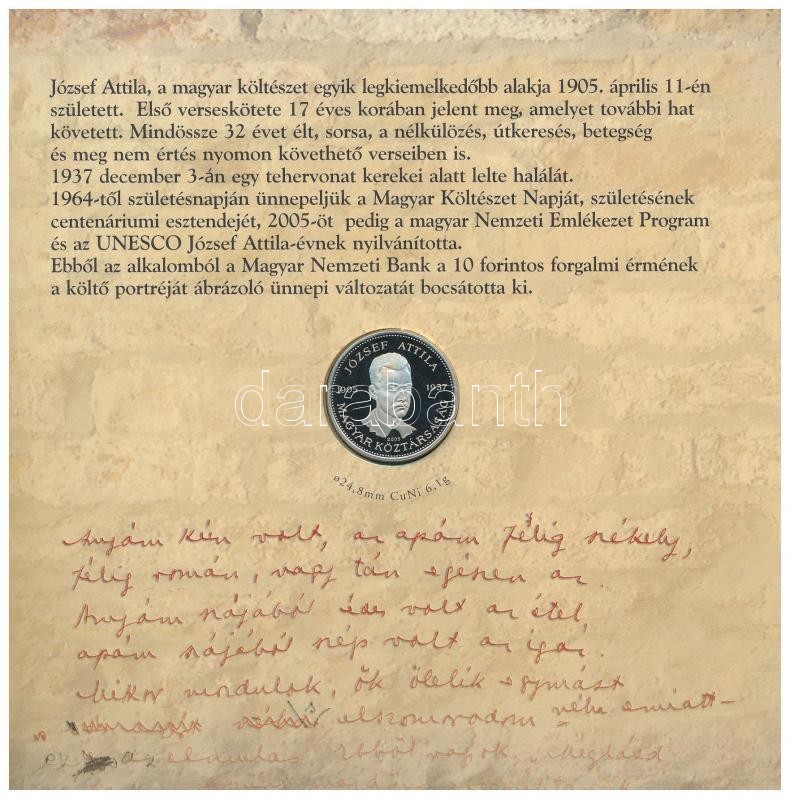 József Attila, a magyar költészet egyik legkiemelkedőbb alakja 1905. április 11-én
született. Első verseskötete 17 éves korában jelent meg, amelyet további hat
követett. Mindössze 32 évet élt, sorsa, a nélkülözés, útkeresés, betegség
és meg nem értés nyomon követhető verseiben is.
1937 december 3-án egy tehervonat kerekei alatt lelte halálát.
1964-től születésnapján ünnepeljük a Magyar Költészet Napját, születésének
centenáriumi esztendejét, 2005-öt pedig a magyar Nemzeti Emlékezet Program
és az UNESCO József Attila-évnek nyilvánította.
Ebből az alkalomból a Magyar Nemzeti Bank a 10 forintos forgalmi érmének
a költő portréját ábrázoló ünnepi változatát bocsátotta ki.
JÓZSEF ATTILA
1905 1937
darabanth
2005
MAGYAR KÖZTÁRSASÁG
ø24,8mm CuNi 6,1g
Anyám kún volt, az apám félig székely,
félig román, vagy tán egészen az.
Anyám szájából édes volt az étel,
apám szájából szép volt az igaz.
Mikor mozdulok, ők ölelik egymást
elszomorodom néha emiatt –
ez az elmulás. Ebből vagyok. Meglásd